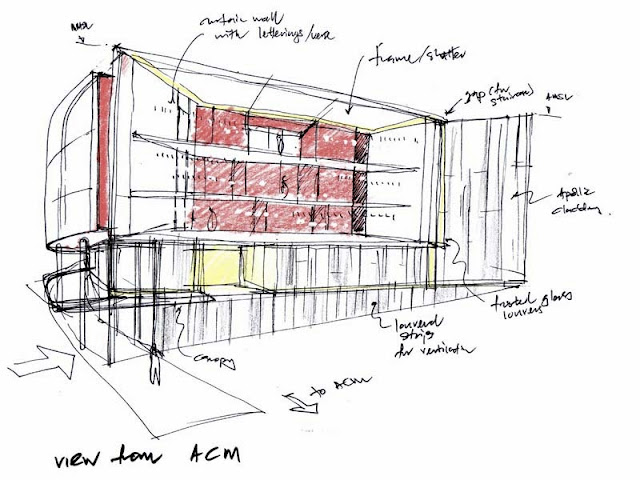 curtain wall
with letterings/
frame/shutter
gap (for
staircase)
AMSL
frosted glass
louvers
louvered
strips
for ventilation
canopy
to ACM
VIEW from ACM